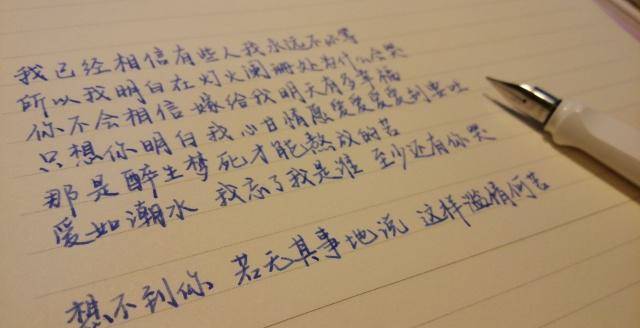 我已经相信有些人我永远不必等
所以我明白在灯火阑珊处为什么会哭
你不会相信嫁给我明天有多幸福
只想你明白我心甘情愿爱爱爱爱到要吐
那是醉生梦死才能熬成的苦
爱如潮水 我忘了我是谁 至少还有你哭
想不到你 若无其事地说 这样滥情何苦